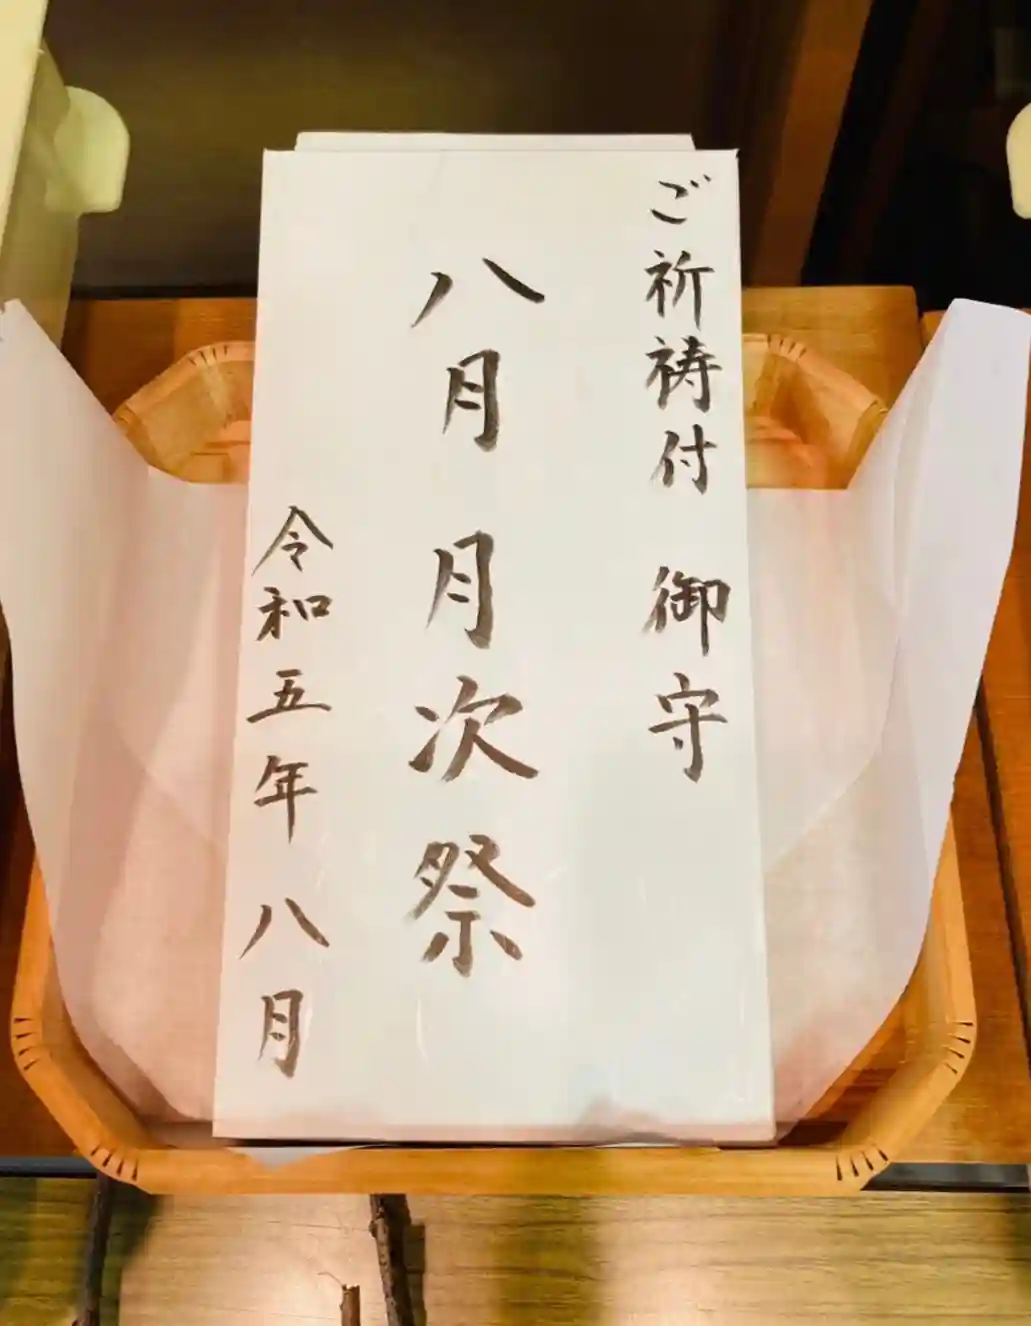 ご祈祷付 御守
八月 月次祭
令和五年 八月